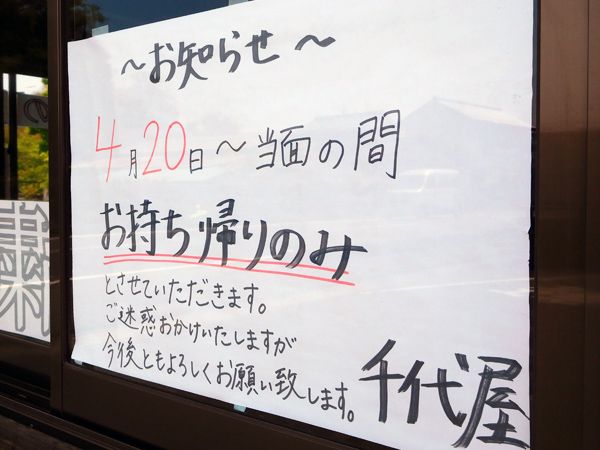 ～お知らせ～
4月20日～当面の間
お持ち帰りのみ
とさせていただきます。
ご迷惑おかけいたしますが
今後ともよろしくお願い致します。
千代屋